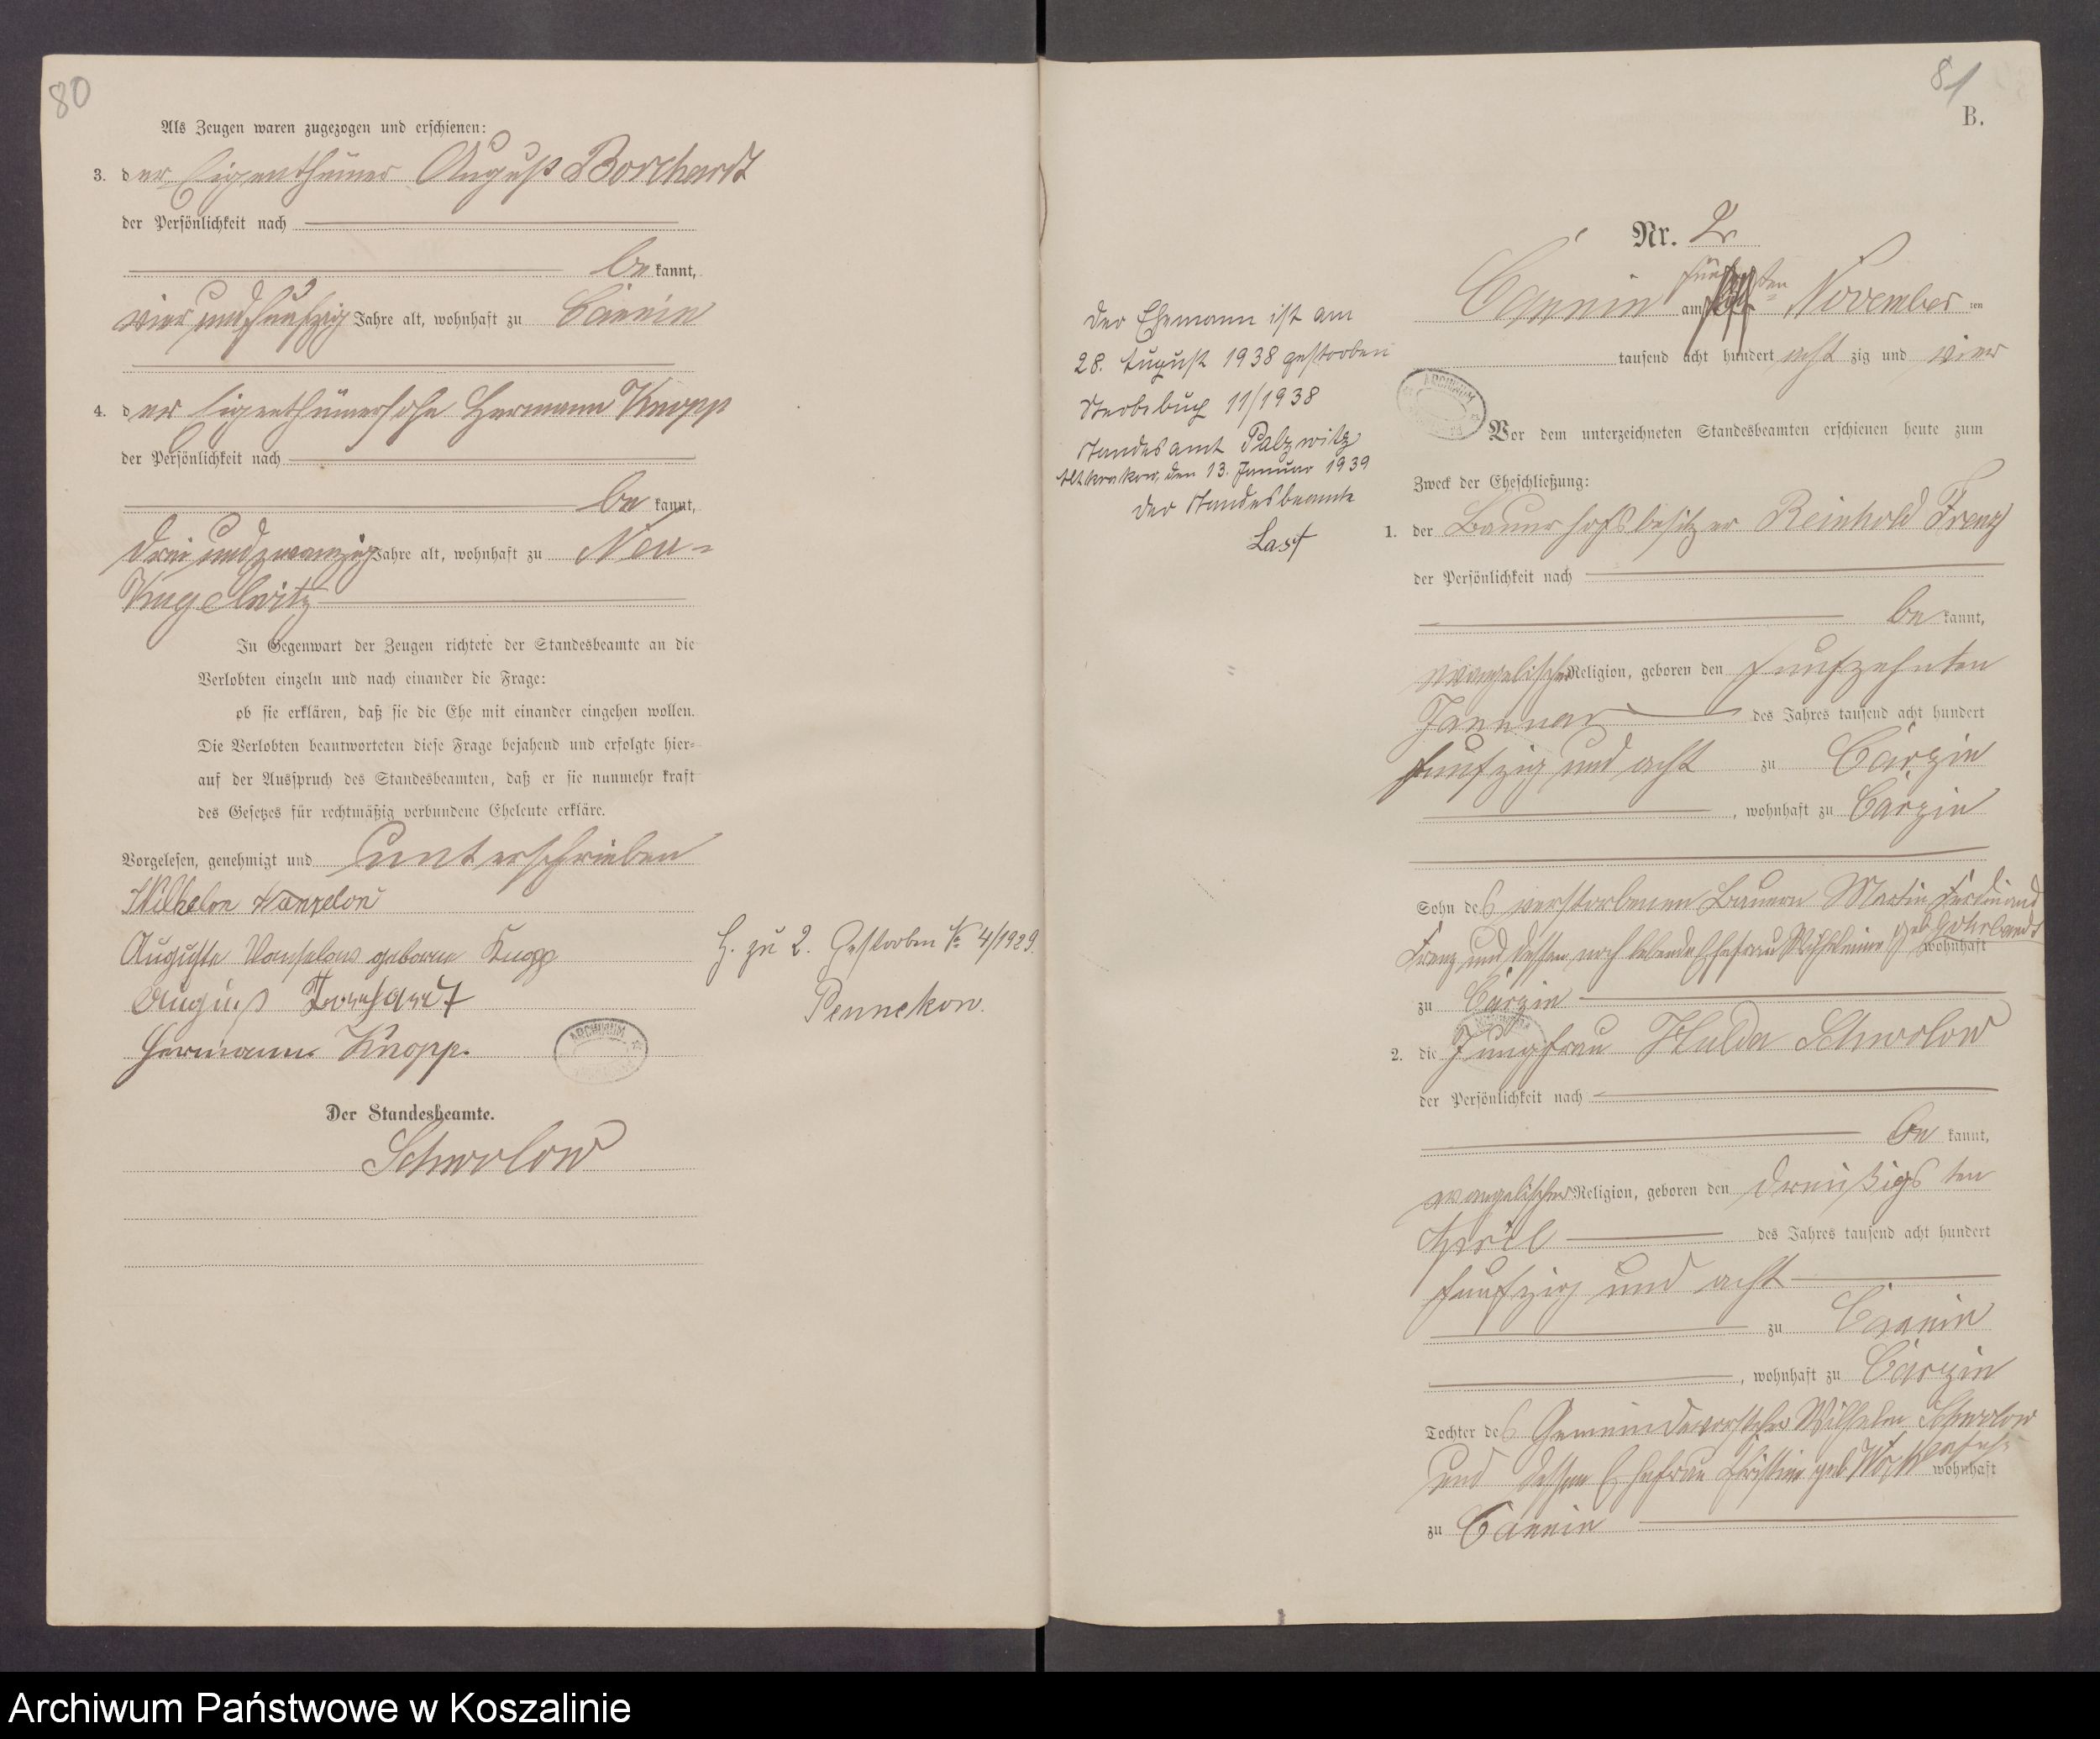 80
Als Zeugen waren zugezogen und erschienen:
3. der Eigenthümer August Borchardt
der Persönlichkeit nach
bekannt,
vier und fünfzig Jahre alt, wohnhaft zu Cannin
4. der Eigenthümersohn Hermann Knopp
der Persönlichkeit nach
bekannt,
drei und zwanzig Jahre alt, wohnhaft zu Neu-
Kugelwitz
In Gegenwart der Zeugen richtete der Standesbeamte an die
Verlobten einzeln und nach einander die Frage:
ob sie erklären, daß sie die Ehe mit einander eingehen wollen.
Die Verlobten beantworteten diese Frage bejahend und erfolgte hier-
auf der Ausspruch des Standesbeamten, daß er sie nunmehr kraft
des Gesetzes für rechtmäßig verbundene Eheleute erkläre.
Vorgelesen, genehmigt und unterschrieben
Wilhelm Vanselow
Auguste Vanselow geborene Knopp
August Borchardt
Hermann Knopp.
Der Standesbeamte.
Schwolow
H. zu 2. Gestorben Nr 4/1929.
Pennekow.
81
B.
Nr. 2
Cannin am ten November ten
tausend acht hundert acht zig und vier
Vor dem unterzeichneten Standesbeamten erschienen heute zum
Zweck der Eheschließung:
1. der Bauerhofsbesitzer Reinhold Frenz
der Persönlichkeit nach
bekannt,
evangelischer Religion, geboren den fünfzehnten
Januar des Jahres tausend acht hundert
fünfzig und acht zu Carzin
, wohnhaft zu Carzin
Sohn des verstorbenen Bauern Martin Ferdinand
Frenz und dessen noch lebende Ehefrau Wilhelmine geb wohnhaft
zu Carzin
2. die Jungfrau Hulda Schwolow
der Persönlichkeit nach
bekannt,
evangelischer Religion, geboren den dreißigsten
April des Jahres tausend acht hundert
fünfzig und acht
zu Cannin
, wohnhaft zu Carzin
Tochter des Gemeindevorsteher Wilhelm Schwolow
und dessen Ehefrau Christine geb wohnhaft
zu Cannin
Der Ehemann ist am
28. August 1938 gestorben
Sterbebuch 11/1938
Standesamt Palzwitz
Altkrakow, den 13. Januar 1939
Der Standesbeamte
Last
ARCHIWUM
Archiwum Państwowe w Koszalinie